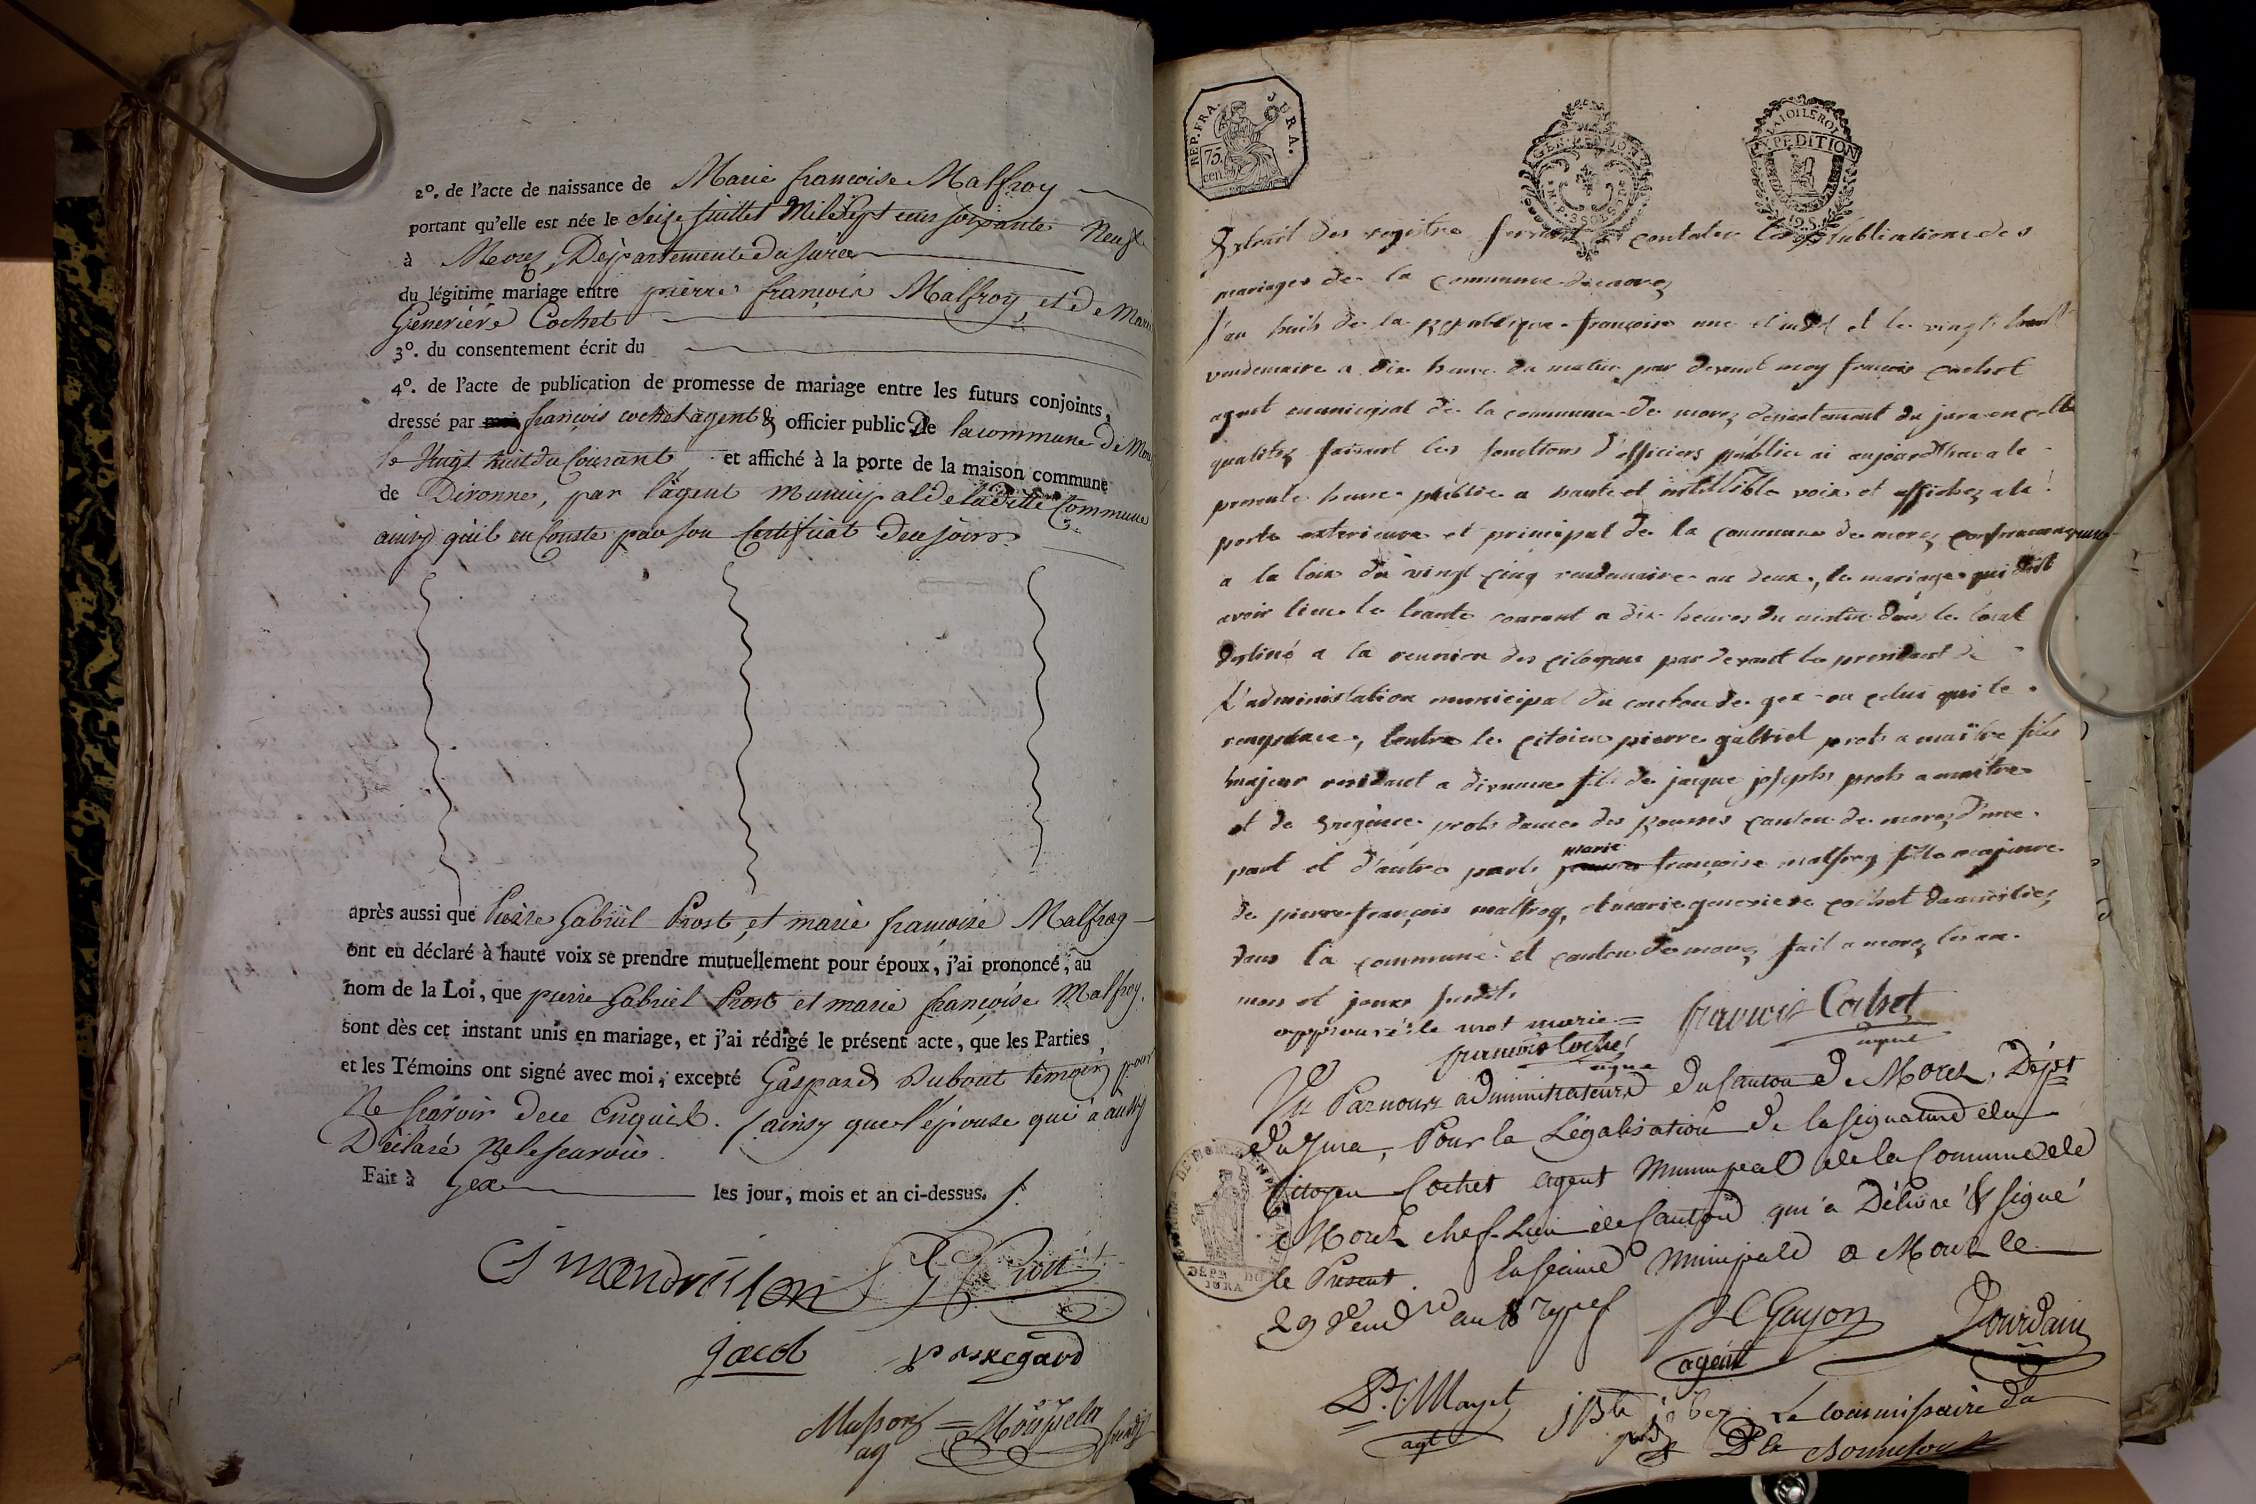 2º. de l'acte de naissance de Marie françoise Malfroy
portant qu'elle est née le seize juillet Mil sept cens soixante Neuf
à Morez, Département du jura
du légitime mariage entre pierre françois Malfroy, et de Marie
Genevieve Cochet
3º. du consentement écrit du
4º. de l'acte de publication de promesse de mariage entre les futurs conjoints,
dressé par françois cochet agent & officier public De la commune De
le Vingt huit du Courant et affiché à la porte de la maison commune
de Divonne, par l'agent municipal de la ditte Commune
ainsy qu'il en Conste par son Certificat de ce jour
après aussi que Pierre Gabriel Prost, et marie françoise Malfroy
ont eu déclaré à haute voix se prendre mutuellement pour époux, j'ai prononcé, au
nom de la Loi, que pierre Gabriel Prost et marie françoise Malfroy
sont dès cet instant unis en mariage, et j'ai rédigé le présent acte, que les Parties
et les Témoins ont signé avec moi, excepté Gaspard Dubout témoin, pour
Ne scavoir de ce Enquis. ainsy que l'épouse qui a aussy
Déclaré Ne le scavoir.
Fait à Gex les jour, mois et an ci-dessus.
mandrillon Prost
Jacob
Masson
ag
REP. FRA. JURA.
75 cen.
GEN.
3 SOLS
LA LOI LE ROI
EXPEDITION
Extrait des registre servant a contater les publications des
mariages de la commune de morez
l'an huit de la republique francoise une et indi et le vingt huit
vendemaire a dix heure du matin par devant moy francois cochet
agent municipal de la commune de morez departement du jura en cette
qualitez faisant les fonctions d'officiers publice ai aujourdhuy a le
presente heure publie a haute et intellible voix et affichez a la
porte exterieure et principal de la commune de morez
a la loix du vingt cinq vendemaire an deux, le mariage qui doit
avoir lieu le trante courant a dix heures du matin dans le local
destiné a la reunion des citoyens par devant le president de
L'administation municipal du canton de gex ou celui qui le
remplace, Lentre le citoien pierre gabriel prost a maitre fils
majeur residant a divonne fils de jacque joseph prost a maitre
et de prost dance des rousses canton de morez d'une
part et d'autre part marie françoise malfroy fille majeure
de pierre françois malfroy, et marie genevieve cochet domicilies
dans la commune et canton de morez fait a morez les an
mois et jours susdit
approuvé le mot marie = françois Cochet
françois Cochet agent
agent
Vu Par nous administrateurs du Canton de Morez, Dépt
du Jura, Pour la Légalisation de la signature du
Citoyen Cochet agent Municipal de la Commune de
Morez chef-lieu de Canton qui a Délivré & signé
le Présent. En séance Municipale a Morez le
29 Vendre an 8
Guyon Jourdain
agent
Mayet Le Commissaire du
agt
DEPT. DU JURA